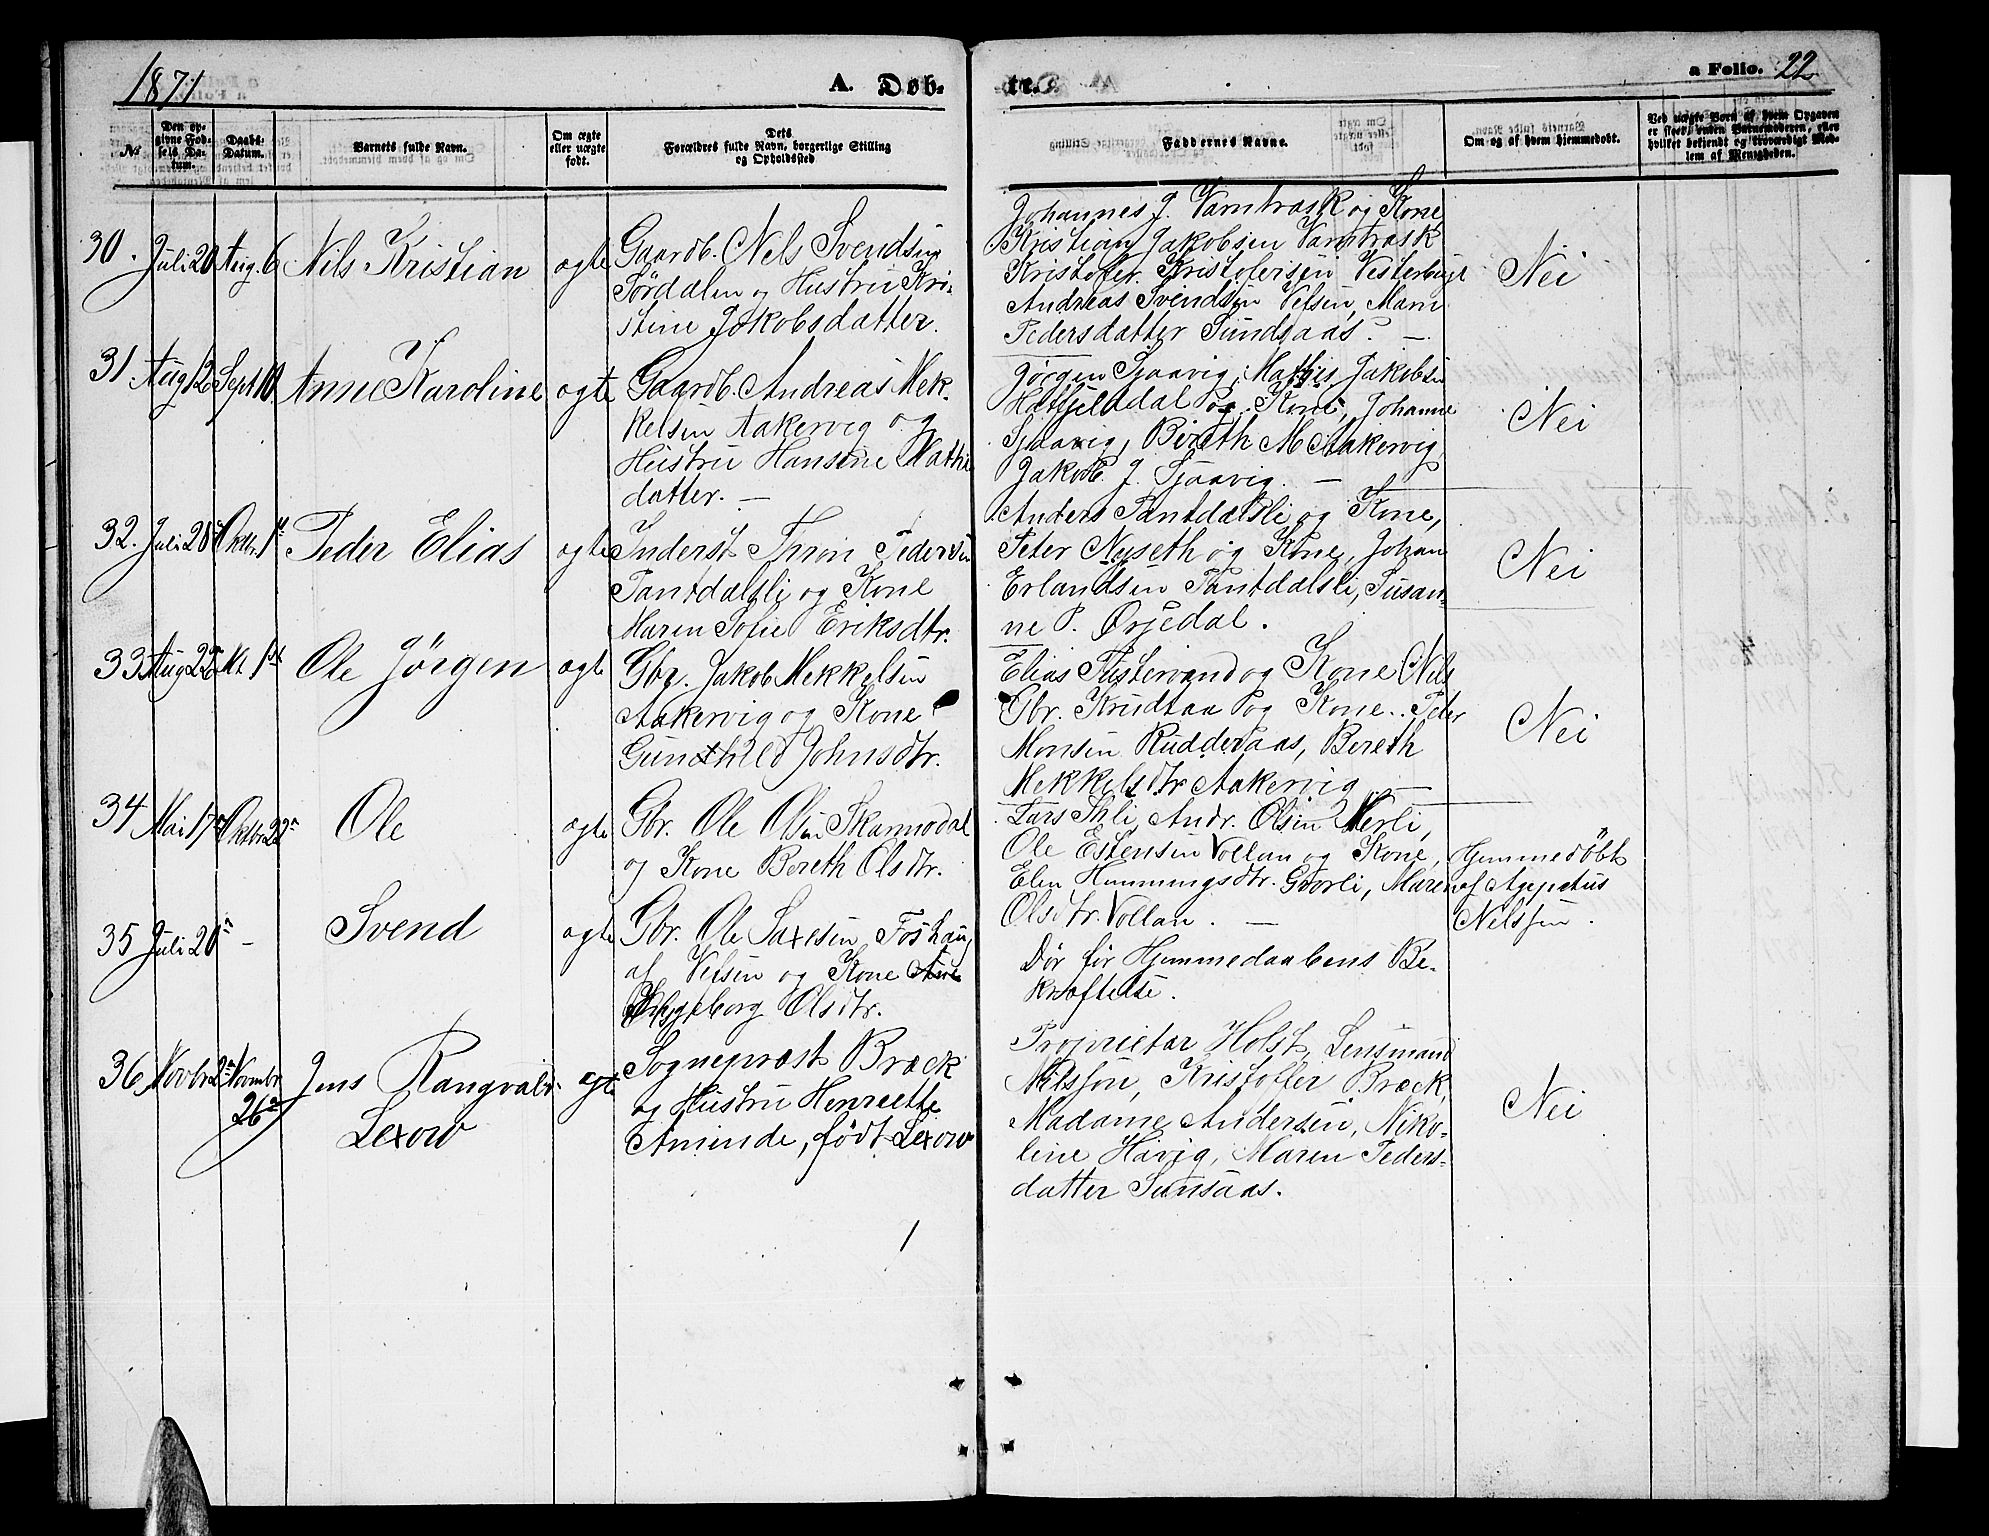 1871
A. Døb-
te.
a Folio. 22.
No
Den op-
givne Fød-
sels Da-
tum.
Daabs-
Datum.
Barnets fulde Navn.
Om ægte
eller uægte
født.
Dets
Forældres fulde Navn, borgerlige Stilling
og Opholdssted
Faddernes Navne.
Om og af hvem hjemmedøbt.
Ved uægte Børn af hvem Opgaven
er skeet, enten Barnemoderen, eller
hvilket bekjendt og troværdigt Med-
lem af Menigheden.
30. Juli 20 Aug. 6 Nils Kristian ægte
Gaardb. Nels Svendsen
Sørdalen og Hustru Kri-
stine Jakobsdatter.
Johannes J. Vamtrask og Kone
Kristian Jakobsen Vamtrask
Kristofer Kristofersen Vesterbugt
Andreas Svendsen Vefsen, Maren
Pedersdatter Sundsaas. —
Nei
31 Aug 12 Sept 10 Anne Karoline ægte
Gaardb. Andreas Mek-
kelsen Aakervig og
Hustru Hansine Mathis
datter. —
Jørgen Sjaavig, Mathis Jakobsen
Hatfjelddal og Kone, Johanne
Sjaavig, Bereth M Aakervig
Jakob J. Sjaavig. —
Nei
32. Juli 28 Oktbr. 1st Peder Elias ægte
Inderst Thron Pedersen
Pantdalsli og Kone
Maren Sofie Eriksdtr.
Anders Pantdalsli og Kone,
Peter Nyseth og Kone, Johan
Erlandsen Pantdalsli, Susan-
ne P. Ørjedal.
Nei
33 Aug 22 Okt 1st Ole Jørgen ægte
Gbr. Jakob Mekkelsen
Aakervig og Kone
Gunhild Johnsdtr.
Elias Fustervand og Kone Nils
Gbr. Krudtaa og Kone. Peter
Monsen Ruddesaas, Bereth
Mekkelsdtr Aakervig —
Nei
34 Mai 17 Oktbr 22n Ole ægte
Gbr. Ole Olsen Skarmodal
og Kone Bereth Olsdtr.
Lars Ihli, Andr. Olsen Merli,
Ole Estensen Vollan og Kone,
Elen Hemmingsdtr. Gvorli, Maren
Olsdtr. Vollan. —
Hjemmedøbt
af Agepetus
Nilssen.
35 Juli 20n — Svend ægte
Gbr. Ole Saxesen Foshaug
af Vefsen og Kone
Ingeborg Olsdtr.
Dør før Hjemmedaabens Be-
kræftelse.
36 Novbr 2n Novembr
26n Jens Rangvald
Lexow
ægte
Sogneprest Bræck
og Hustru Henriette
Aminde, født Lexow
Proprietær Holst, Lensmand
Nilssen, Kristofler Bræck,
Madame Andersen, Niko-
line Havig, Maren Peders-
datter Sunsaas.
Nei